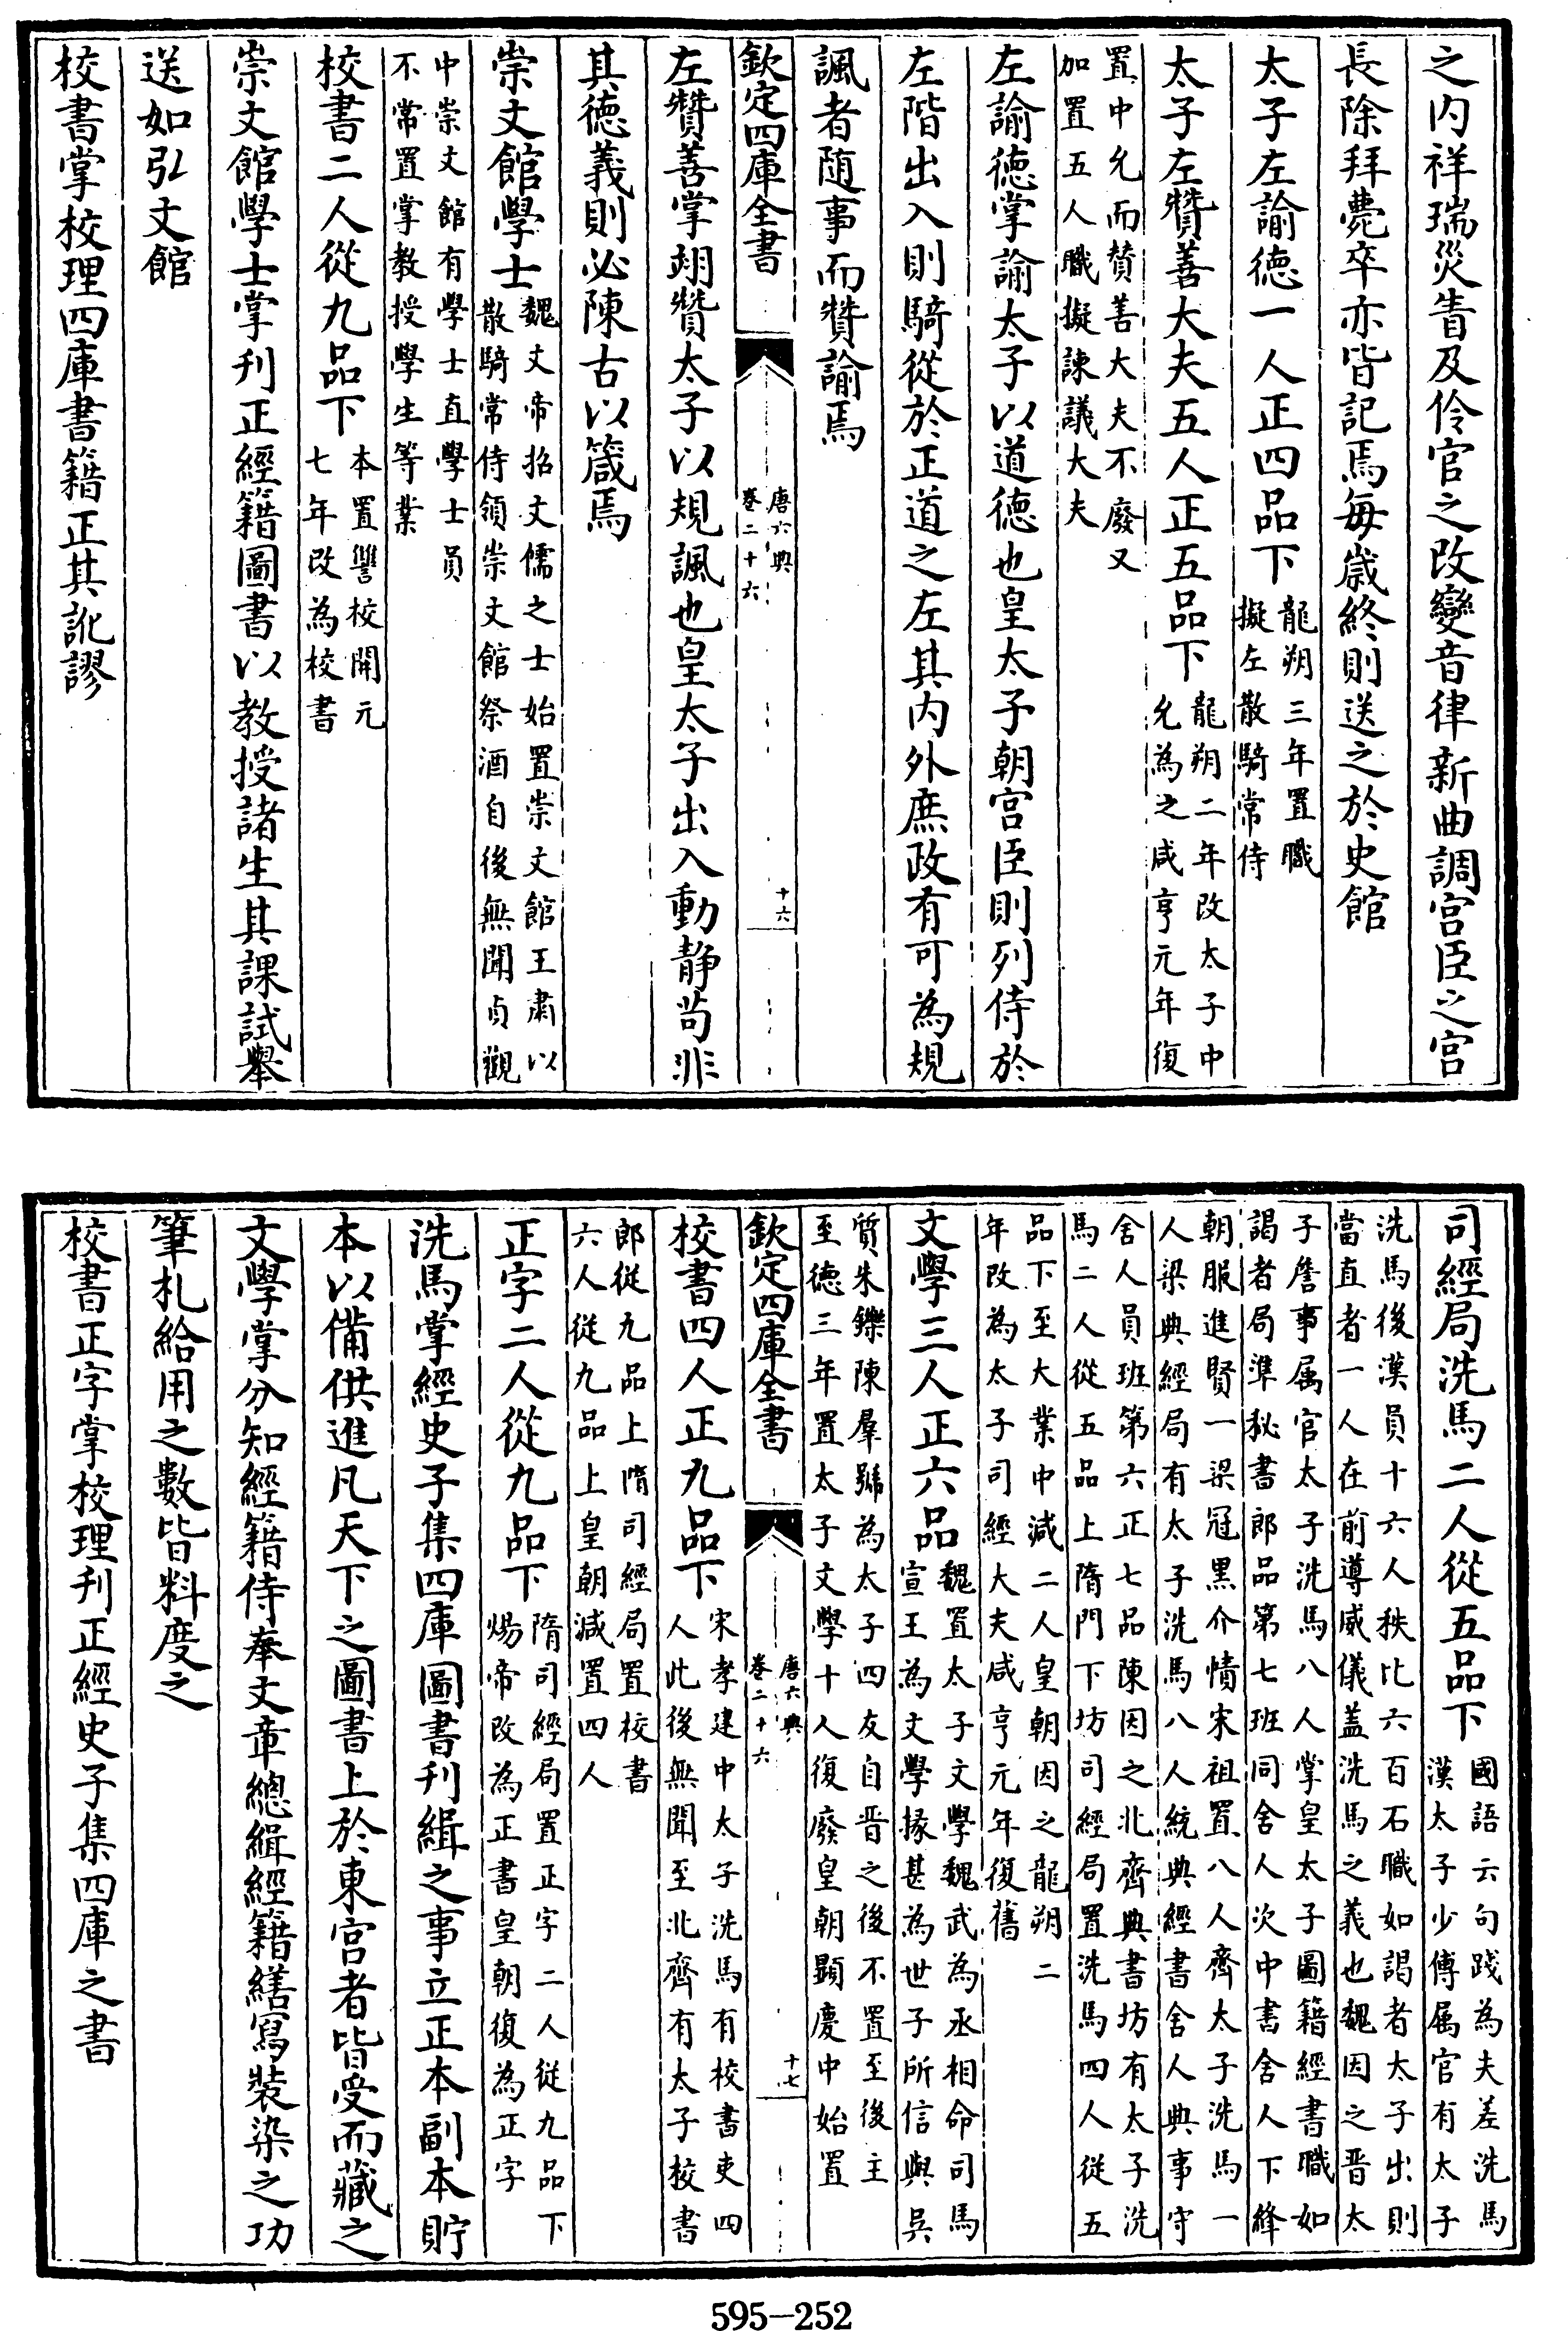 之内祥瑞災眚及伶官之改變音律新曲調宫臣之宫
長除拜薨卒亦皆記焉每歳終則送之於史館
太子左諭徳一人正四品下龍朔三年置職
擬左散騎常侍
太子左贊善大夫五人正五品下龍朔二年改太子中
允為之咸亨元年復
置中允而賛善大夫不廢又
加置五人職擬諫議大夫
左諭徳掌諭太子以道徳也皇太子朝宫臣則列侍於
左階出入則騎從於正道之左其内外庶政有可為規
諷者随事而贊諭焉
欽定四庫全書
唐六典
卷二十六
十六
左贊善掌翊贊太子以規諷也皇太子出入動静茍非
其徳義則必陳古以箴焉
崇文館學士魏文帝招文儒之士始置崇文館王肅以
散騎常侍領崇文館祭酒自後無聞貞觀
中崇文館有學士直學士員
不常置掌教授學生等業
校書二人從九品下本置讐校開元
七年改為校書
崇文館學士掌刊正經籍圖書以教授諸生其課試舉
送如弘文館
校書掌校理四庫書籍正其訛謬
司經局洗馬二人從五品下國語云句踐為夫差洗馬
漢太子少傅属官有太子
洗馬後漢員十六人秩比六百石職如謁者太子出則
當直者一人在前導威儀盖洗馬之義也魏因之晋太
子詹事属官太子洗馬八人掌皇太子圖籍經書職如
謁者局準秘書郎品第七班同舍人次中書舍人下絳
朝服進賢一梁冠黑介幘宋祖置八人齊太子洗馬一
人梁典經局有太子洗馬八人統典經書舍人典事守
舍人員班第六正七品陳因之北齊典書坊有太子洗
馬二人從五品上隋門下坊司經局置洗馬四人從五
品下至大業中減二人皇朝因之龍朔二
年改為太子司經大夫咸亨元年復舊
文學三人正六品魏置太子文學魏武為丞相命司馬
宣王為文學掾甚為世子所信與吳
質朱鑠陳羣號為太子四友自晋之後不置至後主
至徳三年置太子文學十人復廢皇朝顯慶中始置
欽定四庫全書
唐六典
卷二十六
十七
校書四人正九品下宋孝建中太子洗馬有校書吏四
人此後無聞至北齊有太子校書
郎從九品上隋司經局置校書
六人從九品上皇朝減置四人
正字二人從九品下隋司經局置正字二人從九品下
煬帝改為正書皇朝復為正字
洗馬掌經史子集四庫圖書刊緝之事立正本副本貯
本以備供進凡天下之圖書上於東宫者皆受而藏之
文學掌分知經籍侍奉文章總緝經籍繕寫裝染之功
筆札給用之數皆料度之
校書正字掌校理刊正經史子集四庫之書
595-252